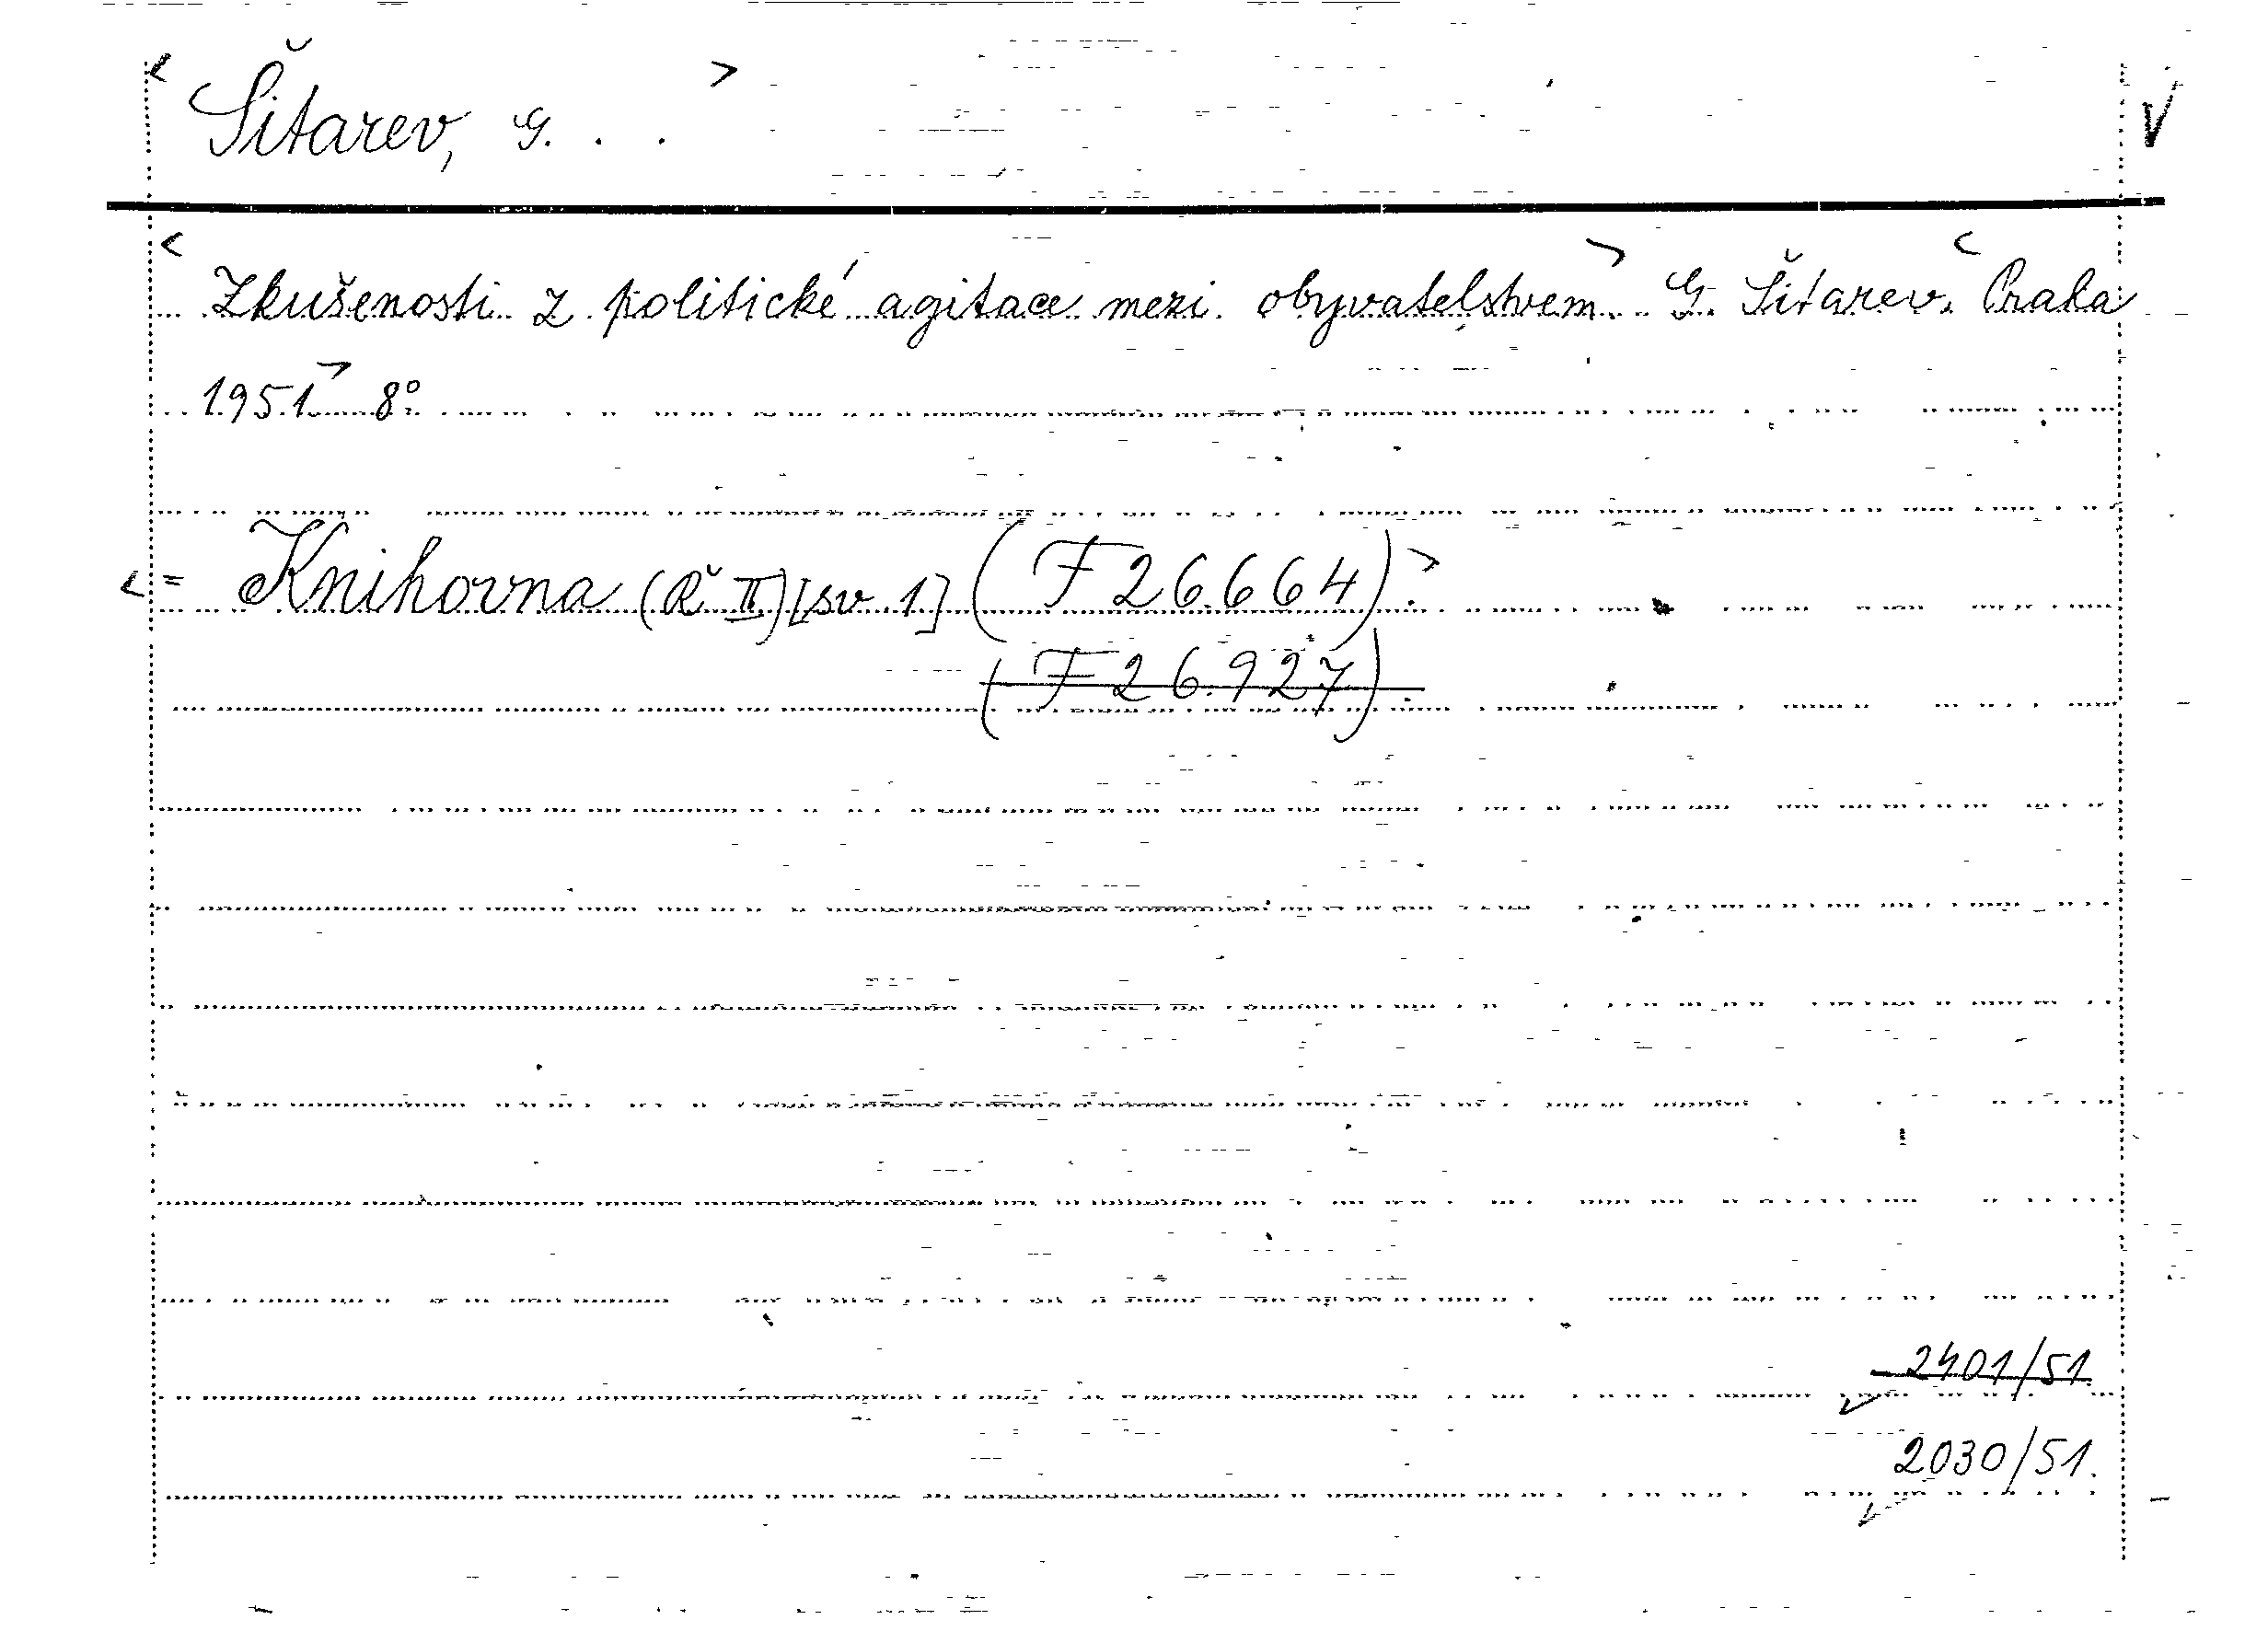 < Šitarev, G. . . > V
< Zkušenosti z politické agitace mezi obyvatelstvem. > G. Šitarev. < Praha
1951 > 8°.
< = Knihovna (Ř II) [sv. 1] (F 26.664). >
(F 26.927).
2401/51.
2030/51.